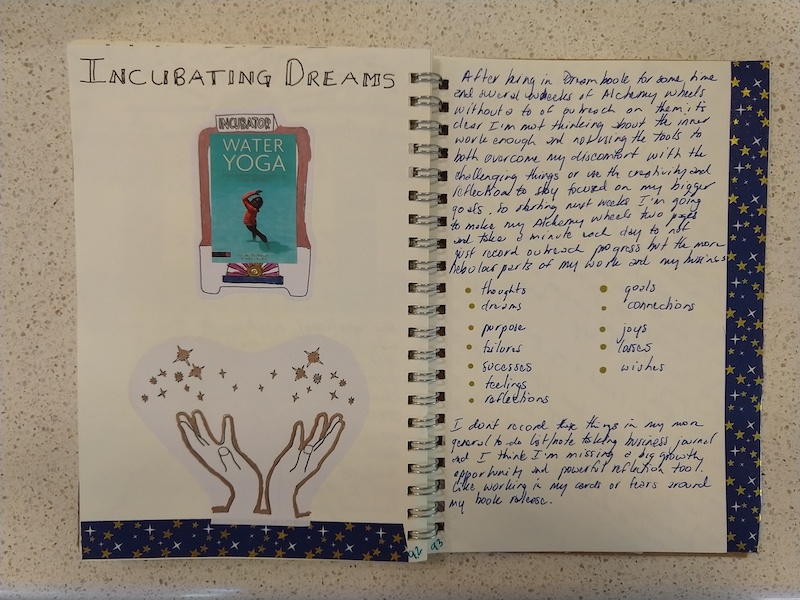 INCUBATING DREAMS
INCUBATOR
WATER
YOGA
After being in Dreambook for some time
and several weeks of Alchemy wheels
without a to of outreach on them its
clear I'm not thinking about the inner
work enough and not using the tools to
both overcome my discomfort with the
challenging things or use the creativity and
reflection to stay focused on my bigger
goals. So starting next weeks I'm going
to make my Alchemy wheels two pages
and take a minute each day to not
just record outreach progress but the more
nebolour parts of my work and my business
thoughts
dreams
purpose
failures
sucesses
feelings
reflections
goals
connections
joys
losses
wishes
I dont record these things in my more
general to do list/note taking business journal
and I think I'm missing a big growthy
opportunity and powerful reflution tool.
Like working in my cards or fears around
my book release.
92 93